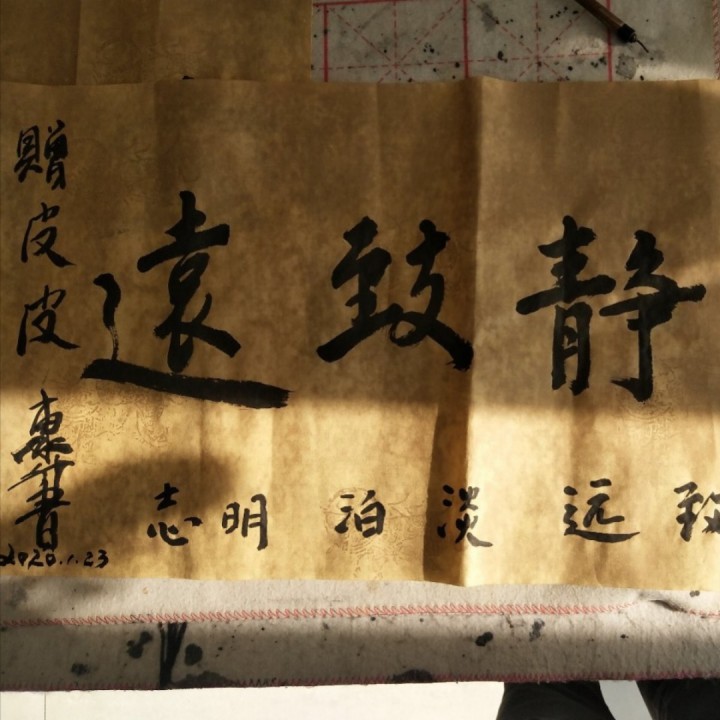 静致遠
致远淡泊明志
贈皮皮
書
2020.1.23